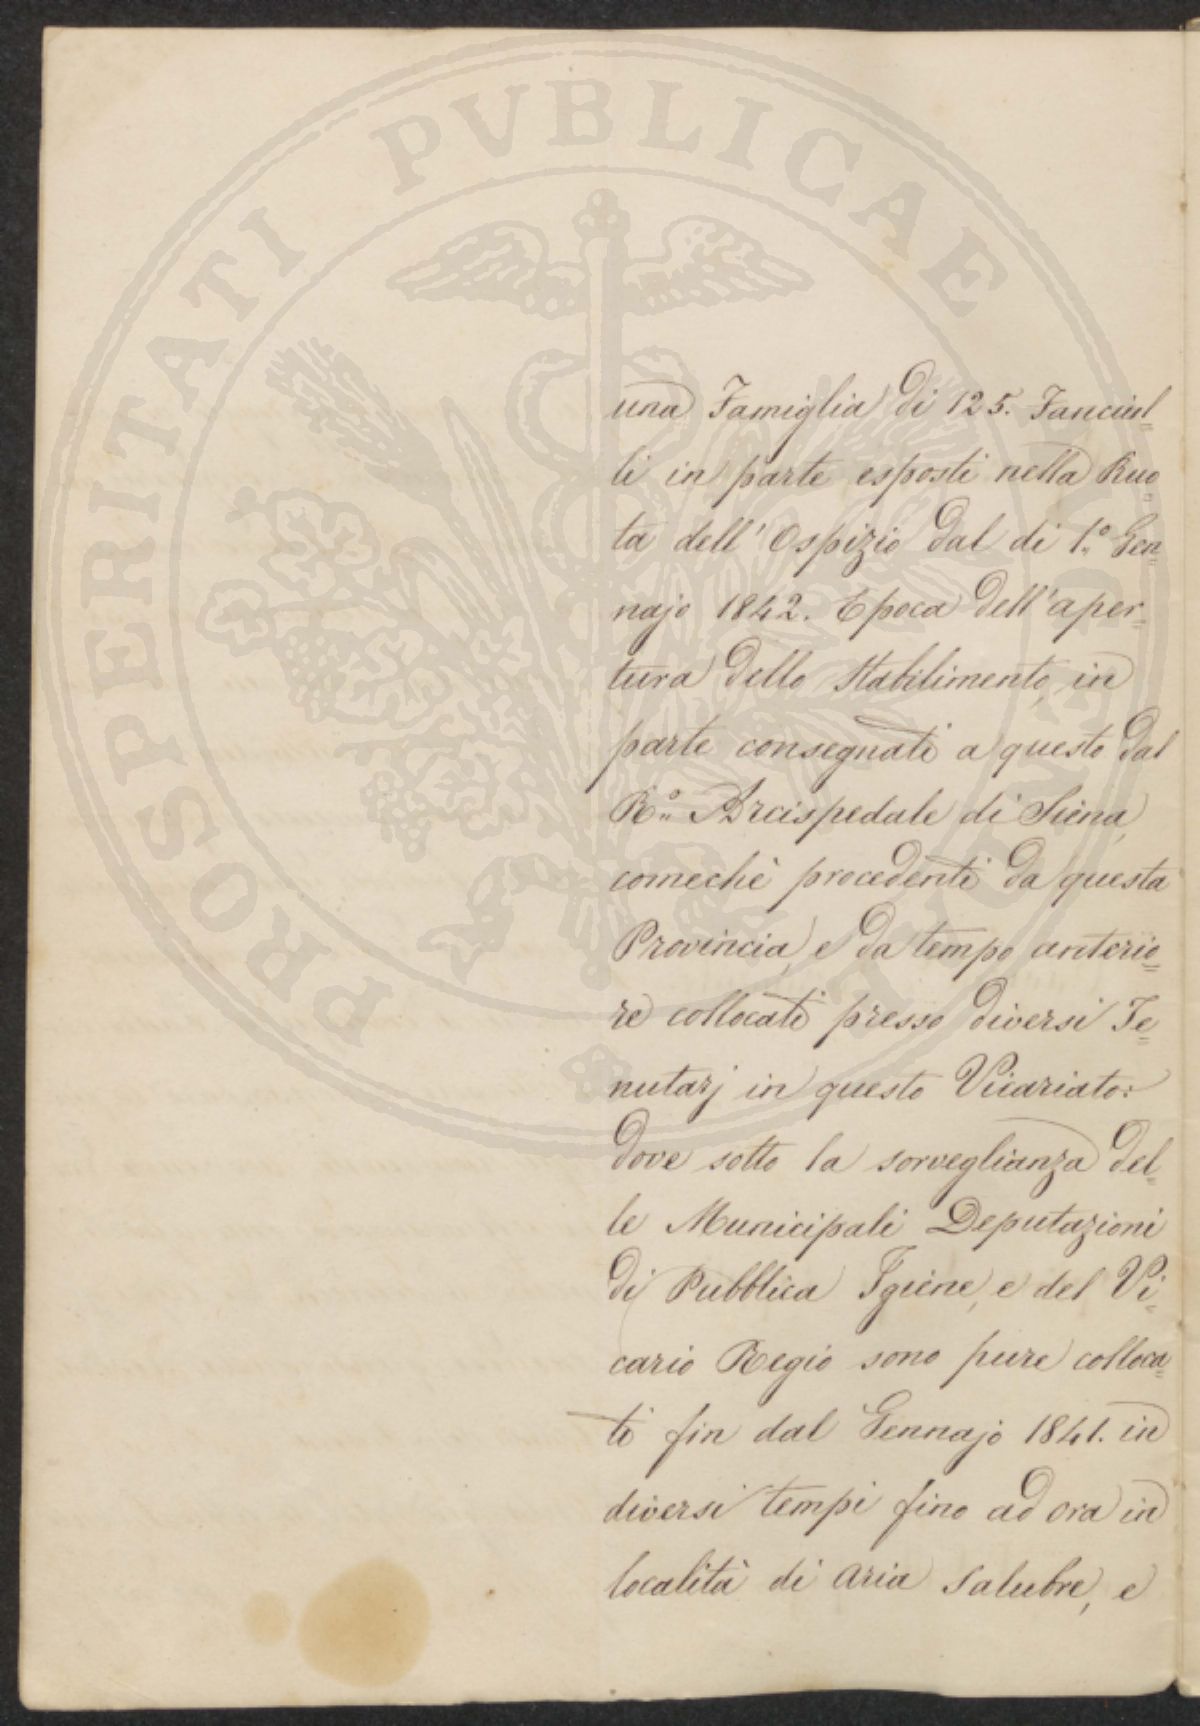 PROSPERITATI PVBLICAE
una Famiglia di 125. Fanciul=
li in parte esposti nella Ruo=
ta dell' Ospizio dal di 1.° Gen=
najo 1842. Epoca dell'aper=
tura dello Stabilimento, in
parte consegnati a questo dal
R.° Arcispedale di Siena,
comechè procedenti da questa
Provincia, e da tempo anterio=
re collocati presso diversi Te=
nutarj in questo Vicariato:
dove sotto la sorveglianza del=
le Municipali Deputazioni
di Pubblica Igiene, e del Vi=
cario Regio sono pure colloca=
ti fin dal Gennajo 1841. in
diversi tempi fino ad ora in
località di aria salubre, e